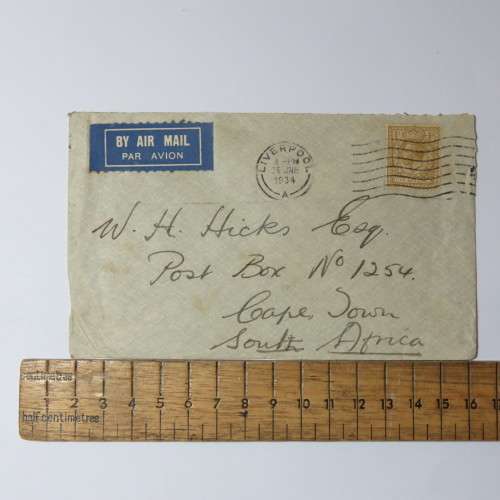 BY AIR MAIL
PAR AVION
LIVERPOOL
JNE
1934
A
W. H. Hicks Esq.
Post Box No 1254.
Cape Town
South Africa
centimetres
1 2 3 4 5 6 7 8 9 10 11 12 13 14 15 16 17
half centimetres